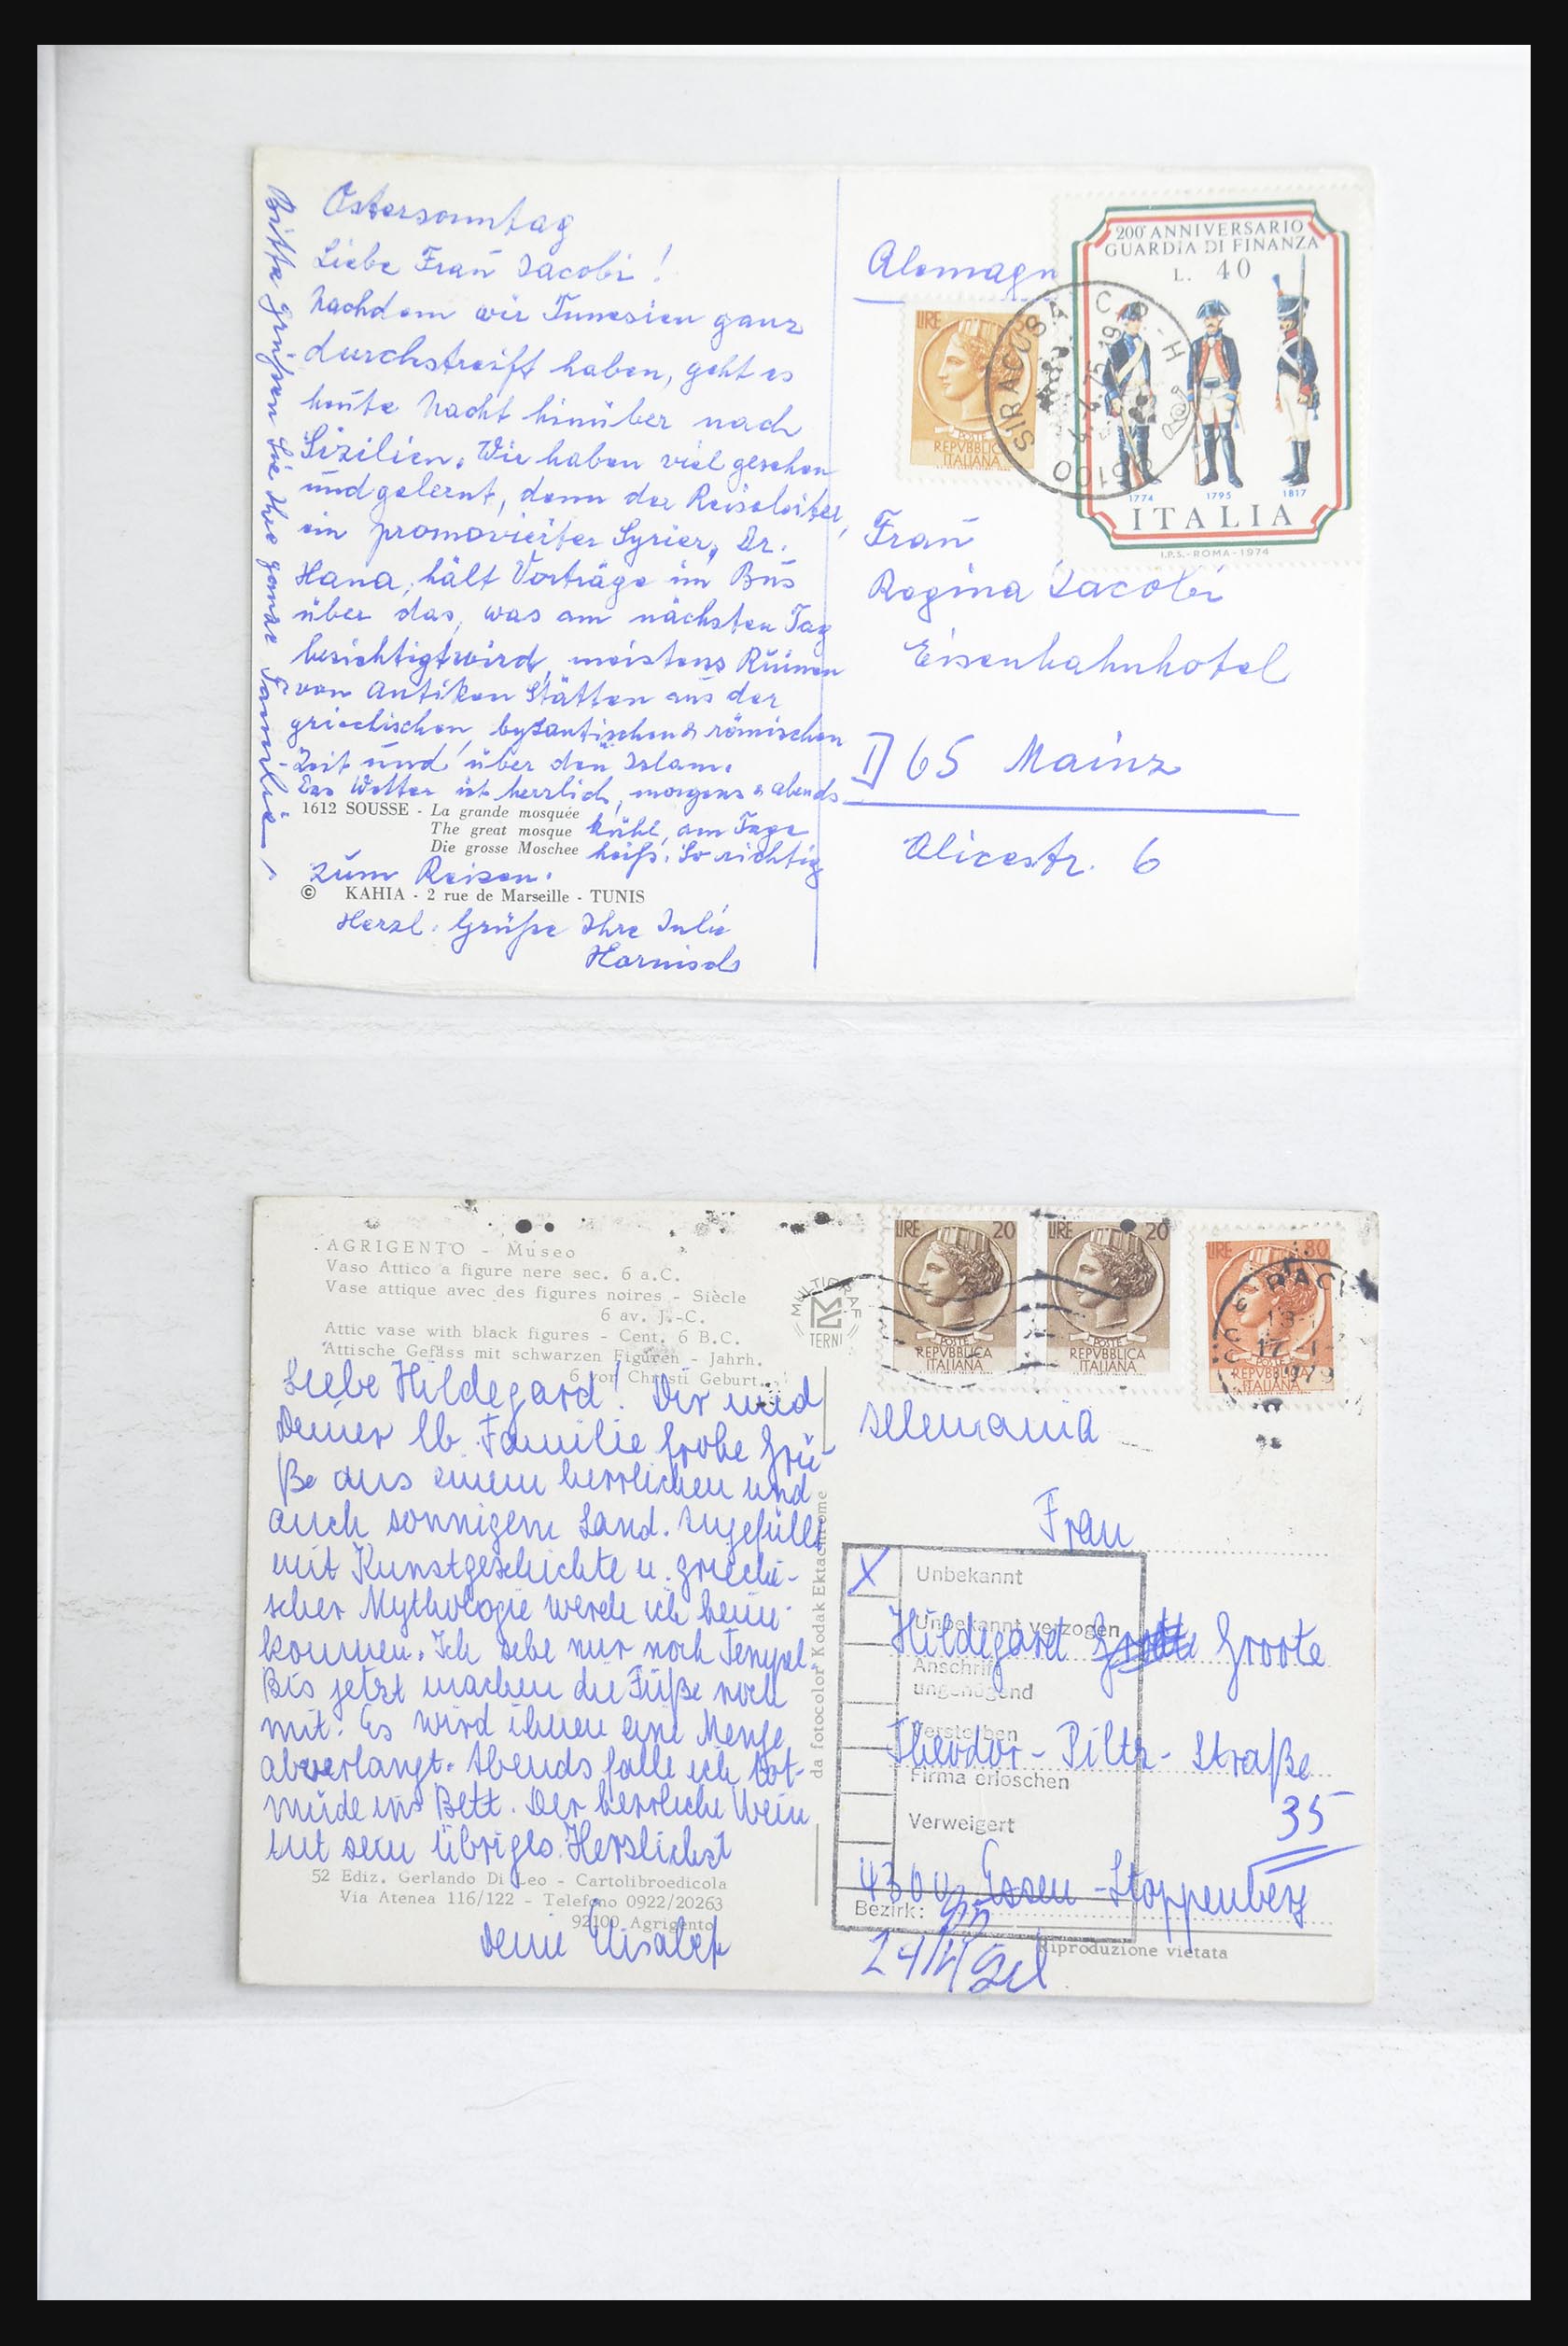 Ostersonntag
Liebe Frau Jacobi!
Nachdem wir Tunesien ganz
durchstreift haben, geht es
heute Nacht hinüber nach
Sizilien. Wir haben viel gesehen
und gelernt, denn der Reiseleiter,
ein promovierter Syrier, Dr.
Hana, hält Vorträge im Bus
über das, was am nächsten Tag
besichtigt wird, meistens Ruinen
von antiken Stätten aus der
griechischen, byzantischen & römischen
Zeit und über den Islam.
Das Wetter ist herrlich, morgens & abends
1612 SOUSSE - La grande mosquée
The great mosque kühl, am Tage
Die grosse Moschee heiß. So richtig
zum Reisen.
© KAHIA - 2 rue de Marseille - TUNIS
Herzl. Grüße Ihre Julie
Harnisch
Bitte grüßen Sie Ihre ganze Familie!
Alemagn
200° ANNIVERSARIO
GUARDIA DI FINANZA
L. 40
1774 1795 1817
ITALIA
I.P.S.-ROMA-1974
LIRE
POSTE
REPVBBLICA
ITALIANA
SIRACUSA C.P-H
4.4.75-19
96100
Frau
Regina Jacobi
Eisenbahnhotel
D 65 Mainz
Alicestr. 6
AGRIGENTO - Museo
Vaso Attico a figure nere sec. 6 a.C.
Vase attique avec des figures noires - Siècle
6 av. J.-C.
Attic vase with black figures - Cent. 6 B.C.
Attische Gefäss mit schwarzen Figuren - Jahrh.
6 vor Christi Geburt.
MULTIGRAF
TERNI
Liebe Hildegard! Dir und
Deiner lb. Familie frohe Grü-
ße aus einem herrlichen und
auch sonnigem Land. Angefüllt
mit Kunstgeschichte u. griechi-
scher Mythologie werde ich heim-
kommen. Ich sehe nur noch Tempel.
Bis jetzt machen die Füße noch
mit. Es wird ihnen eine Menge
abverlangt. Abends falle ich tot-
müde ins Bett. Der herrliche Wein
tut sein übriges. Herzlichst
52 Ediz. Gerlando Di Leo - Cartolibroedicola
Via Atenea 116/122 - Telefono 0922/20263
92100 Agrigento
Deine Elisabeth
da fotocolor Kodak Ektachrome
LIRE 20
POSTE
REPVBBLICA
ITALIANA
LIRE 20
POSTE
REPVBBLICA
ITALIANA
LIRE 80
POSTE
REPVBBLICA
ITALIANA
Alemania
Frau
X Unbekannt
Unbekannt verzogen
Hildegard Groote
Anschrift
ungenügend
Verstorben
Theodor-Piltz-Straße
Firma erloschen
35
Verweigert
4300 Essen-Stoppenberg
Bezirk:
Riproduzione vietata